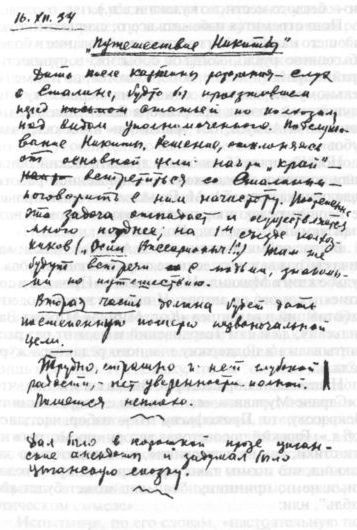 16. XII. 54
"Путешествие Никиты"
Дать после картины раздолья — слух
о Сталине, будто бы проезжавшем
перед статьей по колхозам
под видом уполномоченного. Путешество-
вание Никиты, решение, отклоняясь
от основной цели найти "край"
встретиться со Сталиным —
поговорить с ним начистоту. Постепенно
эта задача отпадает и осуществляется
много позднее, на 1м съезде колхоз-
ников ("Осип Виссарионыч!!") Там же
будут встречи с людьми, знакомы-
ми по путешествию.
Вторая часть должна будет дать
постепенную потерю первоначальной
цели.
Трудно, страшно и нет глубокой
радости, нет уверенности полной.
Пишется неплохо.
Дал было в хорошей прозе цыган-
ские анекдоты и задумал было
цыганскую сказку.